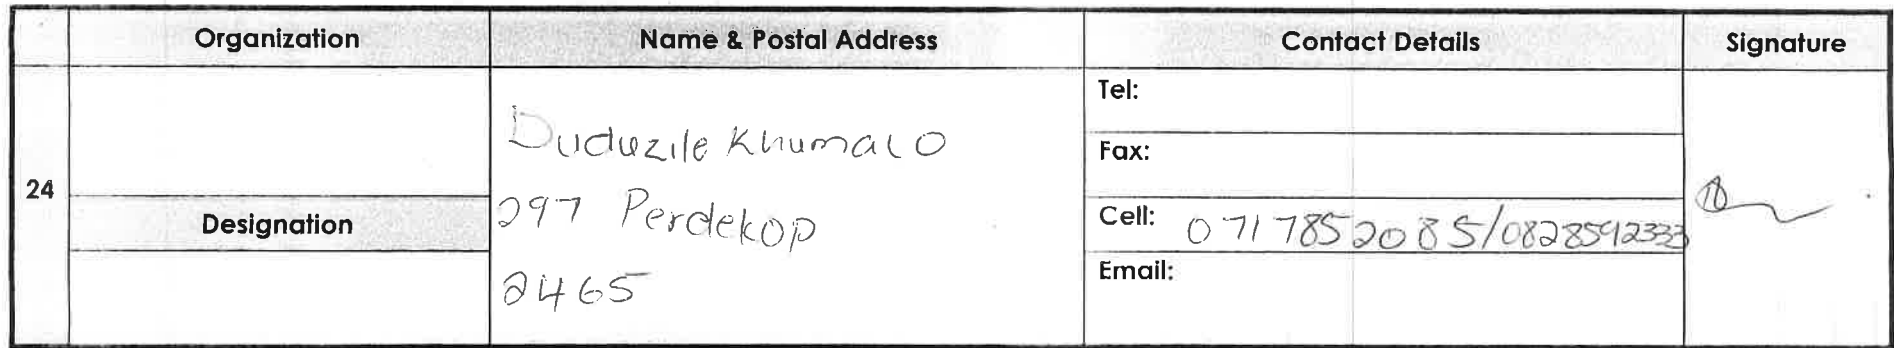 Organization Name & Postal Address Contact Details Signature
24
Designation
Duduzile Khumalo
297 Perdekop
2465
Tel:
Fax:
Cell: 0717852085/0828592333
Email: